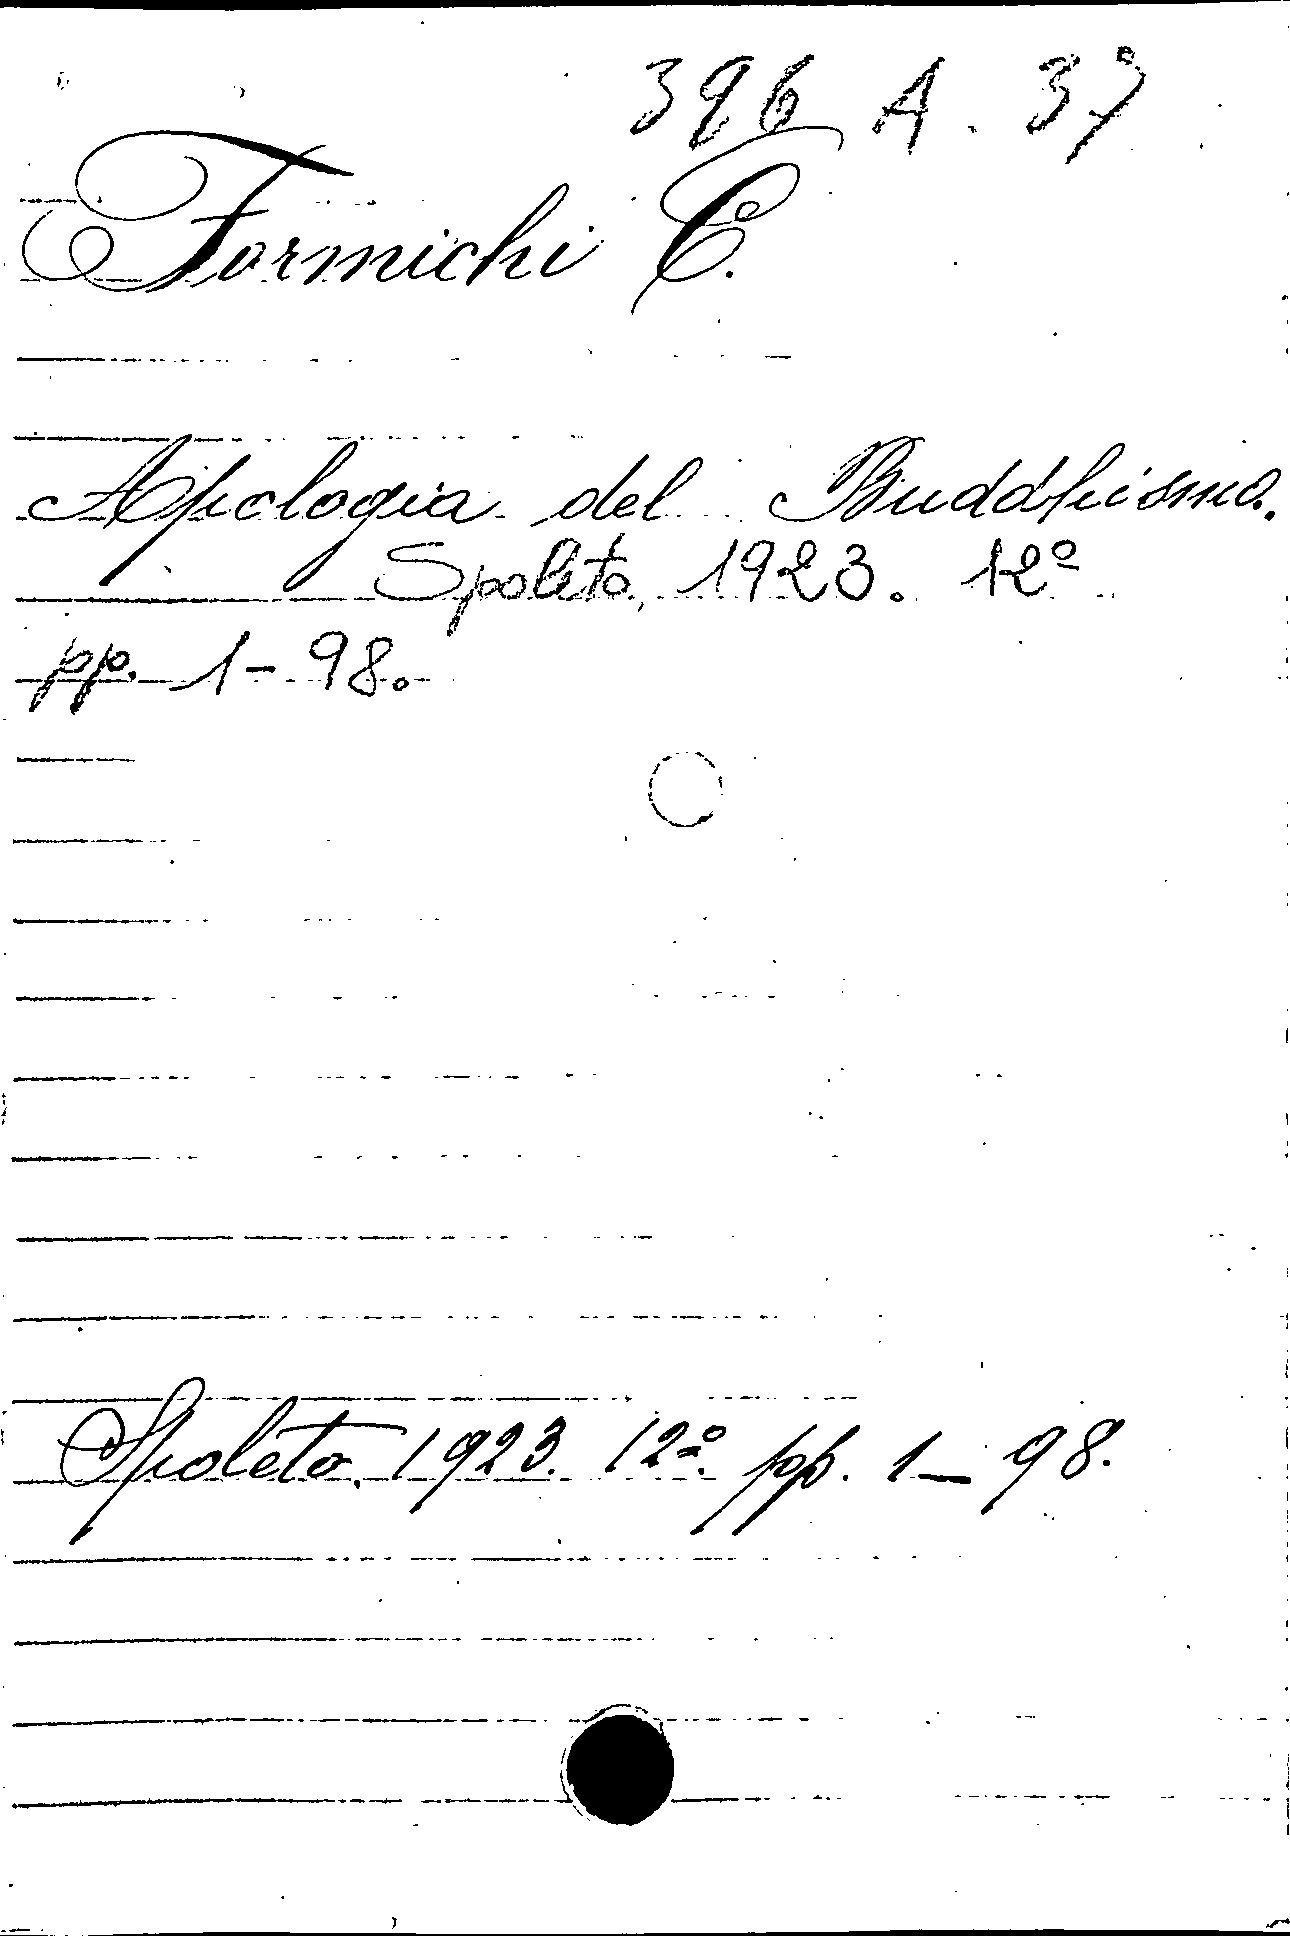 396 A. 37
Formichi C.
Apologia del Buddhismo.
Spoleto, 1923. 12º
pp. 1-98.
Spoleto. 1923. 12º. pp. 1-98.